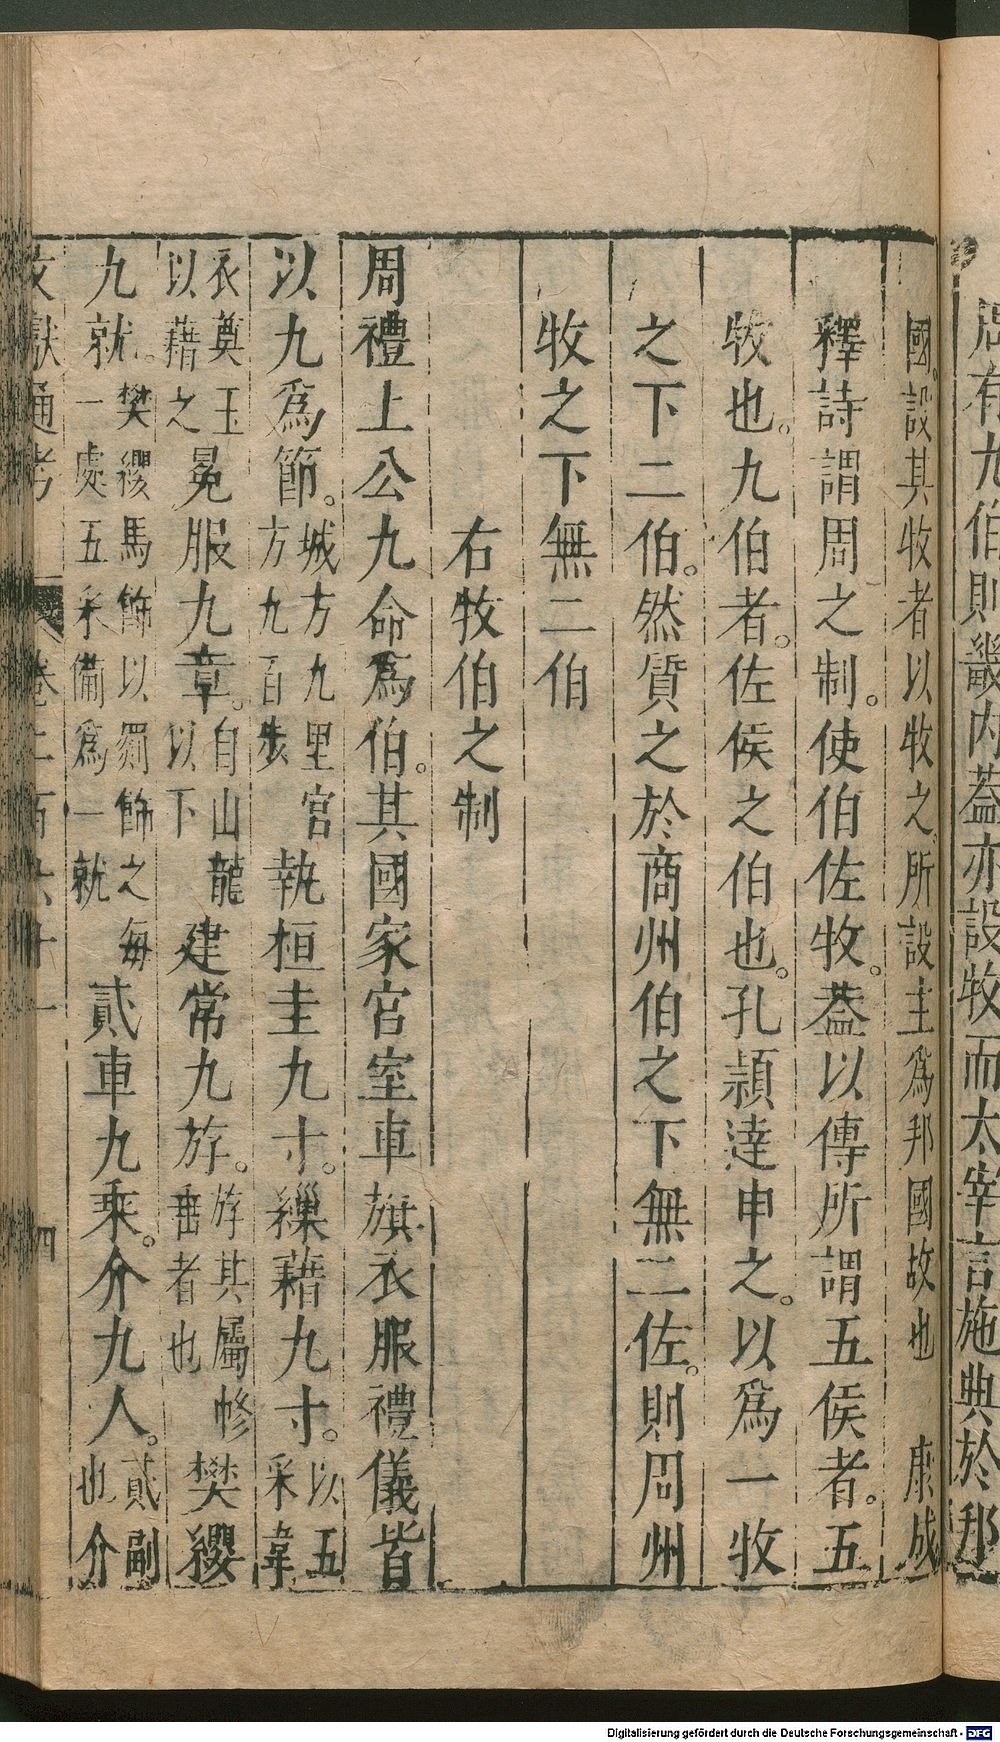 周有九伯則畿内葢亦設牧而太宰言施典於邦
國設其牧者以牧之所設主爲邦國故也　康成
釋詩謂周之制。使伯佐牧。葢以傳所謂五侯者。五
牧也。九伯者。佐侯之伯也。孔頴達申之。以爲一牧
之下二伯。然質之於商州伯之下無二佐。則周州
牧之下無二伯
右牧伯之制
周禮上公九命爲伯。其國家宮室車旗衣服禮儀皆
以九爲節。城方九里宮方九百步執桓圭九寸。繅藉九寸。以五采韋
衣奠玉以藉之冕服九章。自山龍以下建常九斿。斿其屬幓垂者也樊纓
九就。樊纓馬飾以罽飾之每一處五采備爲一就貳車九乘。介九人。貳副也介
文獻通考　卷二百六十一　四
Digitalisierung gefördert durch die Deutsche Forschungsgemeinschaft - DFG